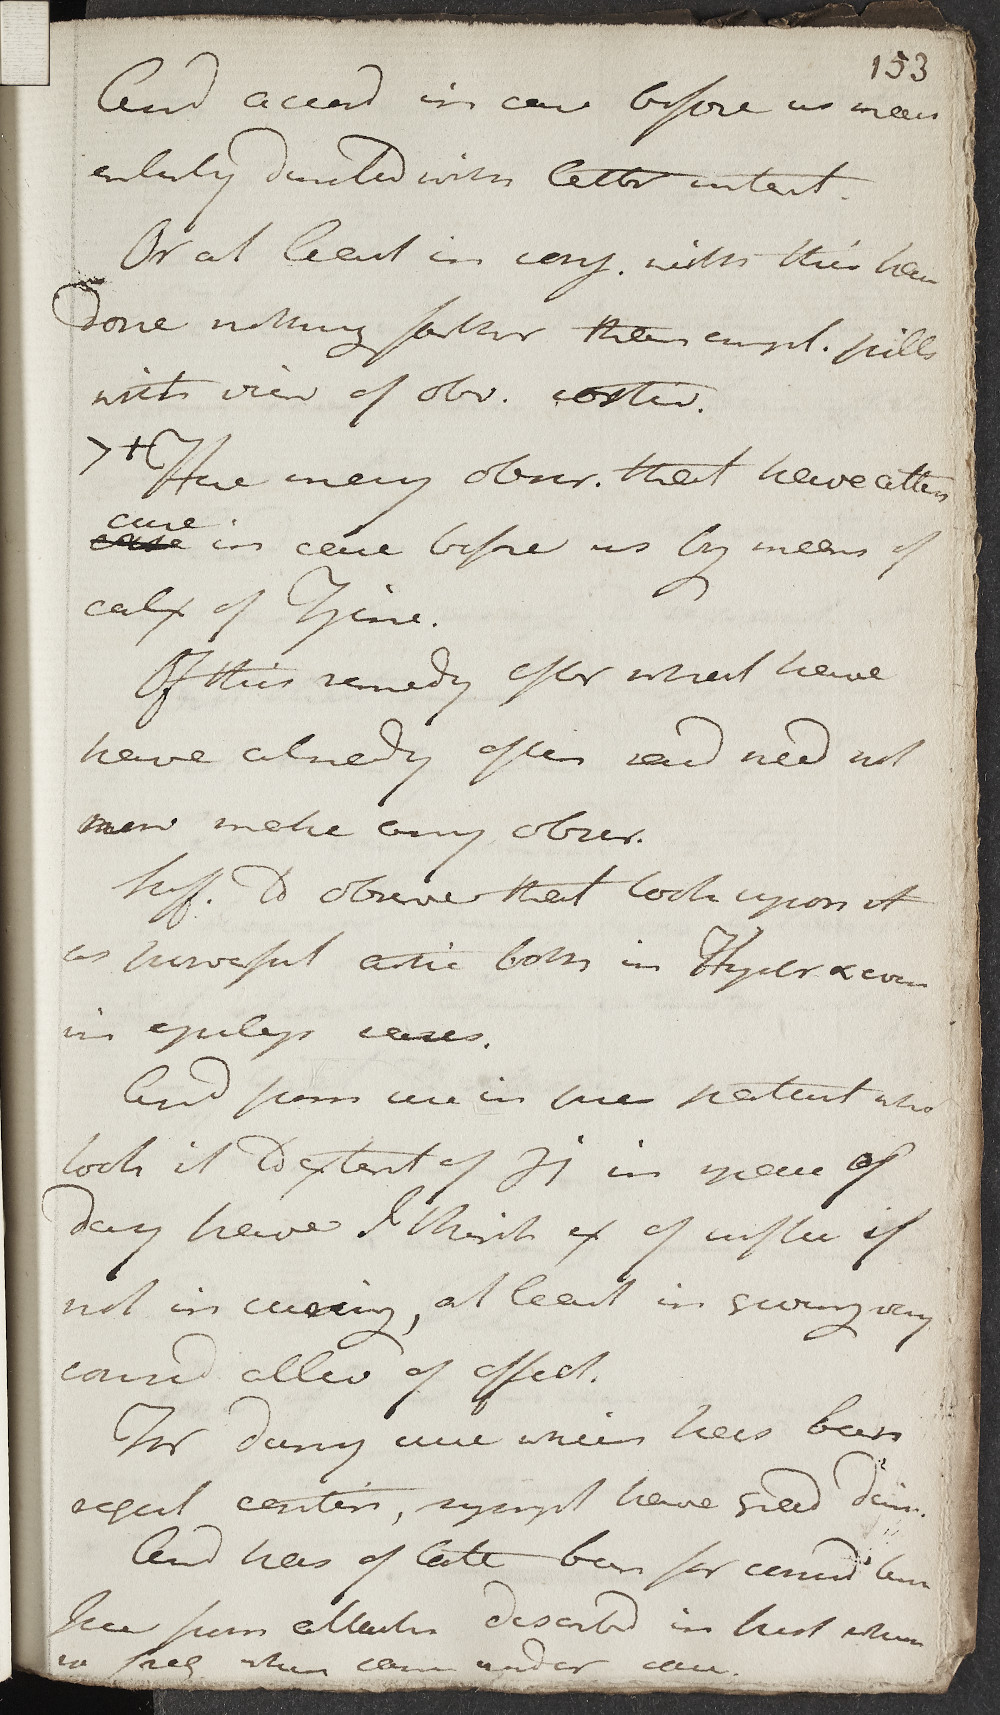 153
And accord in case before us means
entirely directed with latter intent.
Or at least in consq. with this have
done nothing farther than empl. pills
with view of obv. costiv.
>+ Here many obser. that have attem
cure
case in case before us by means of
calx of Zinc.
Of this remedy after what have
have already often said need not
now make any obser.
Suff. to observe that look upon it
as powerful artic both in Hyster & even
in epileps cases.
And from use in pres patient who
took it to extent of ʒj in space of
day have I think ex of influ if
not in curing, at least in giving very
consid allev of affect.
For during use which has been
regul contin, sympt have grad dimin.
And has of late been for consid time
free from attacks described in hist when
so freq when came under care.